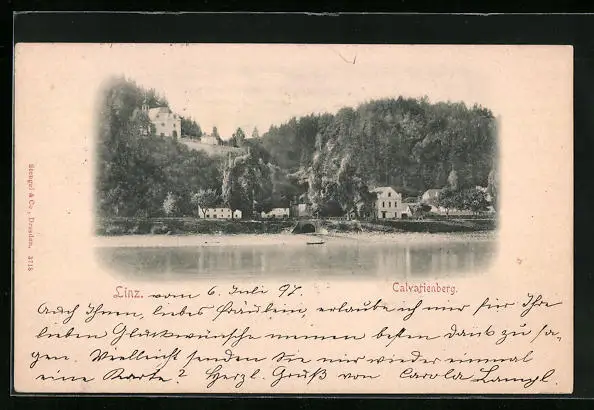 Stengel & Co., Dresden. 3713
Linz. vom 6. Juli 97. Calvarienberg.
Auch Ihnen, liebes Fräulein, erlaube ich mir für Ihre
lieben Glückwünsche meinen besten Dank zu sa-
gen. Vielleicht senden Sie mir wieder einmal
eine Karte? Herzl. Gruß von Carola Lampl.